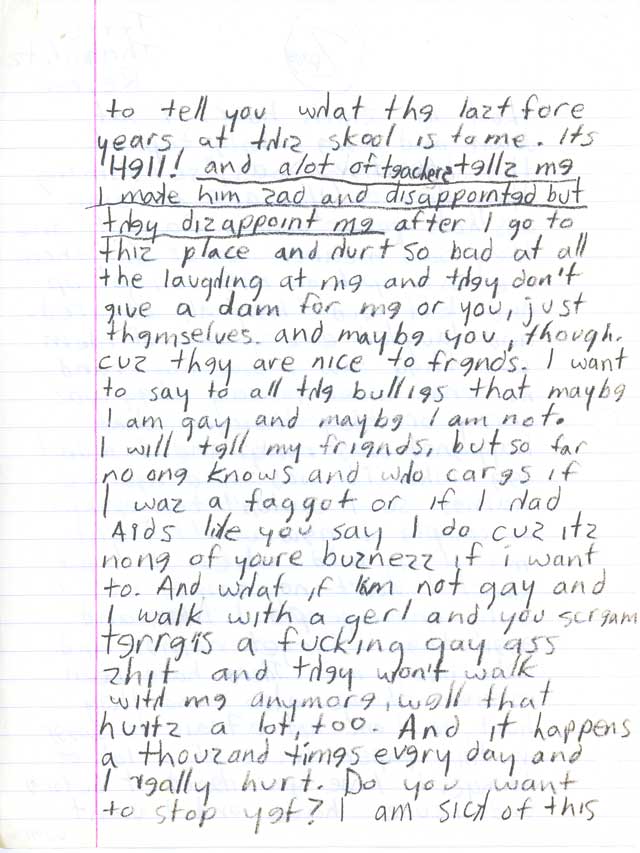 to tell you what the lazt fore
years at thiz skool is to me. Its
Hell! and alot of teacherz tellz me
I make him zad and disappointed but
they dizappoint me after I go to
thiz place and hurt so bad at all
the laughing at me and they don't
give a dam for me or you, just
themselves. and maybe you, though.
cuz they are nice to frends. I want
to say to all the bullies that maybe
I am gay and maybe I am not.
I will tell my friends, but so far
no one knows and who cares if
I waz a faggot or if I had
AIDS like you say I do cuz itz
none of youre buznezz if i want
to. And what if I'm not gay and
I walk with a gerl and you scream
terre is a fucking gay ass
zhit and they won't walk
with me anymore, well that
hurtz a lot, too. And it happens
a thouzand times every day and
I really hurt. Do you want
to stop yet? I am sick of this